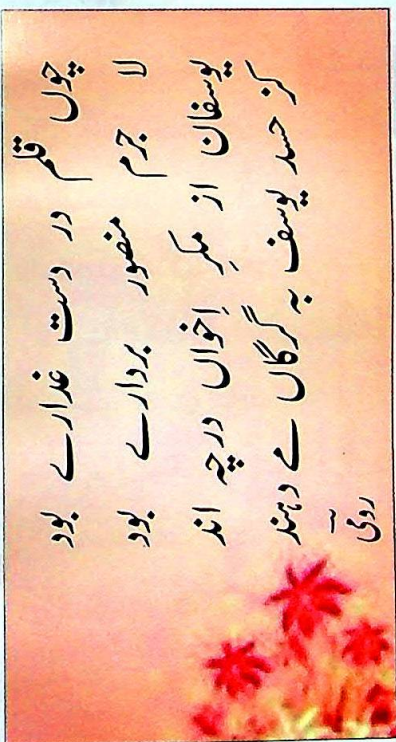 چوں قلم در دست غدارے بود
لا جرم منصور بردارے بود
یوسفان از مکرِ اِخواں درچہ اند
کز حسد یوسف بہ گرگاں مے دہند
رومیؔ